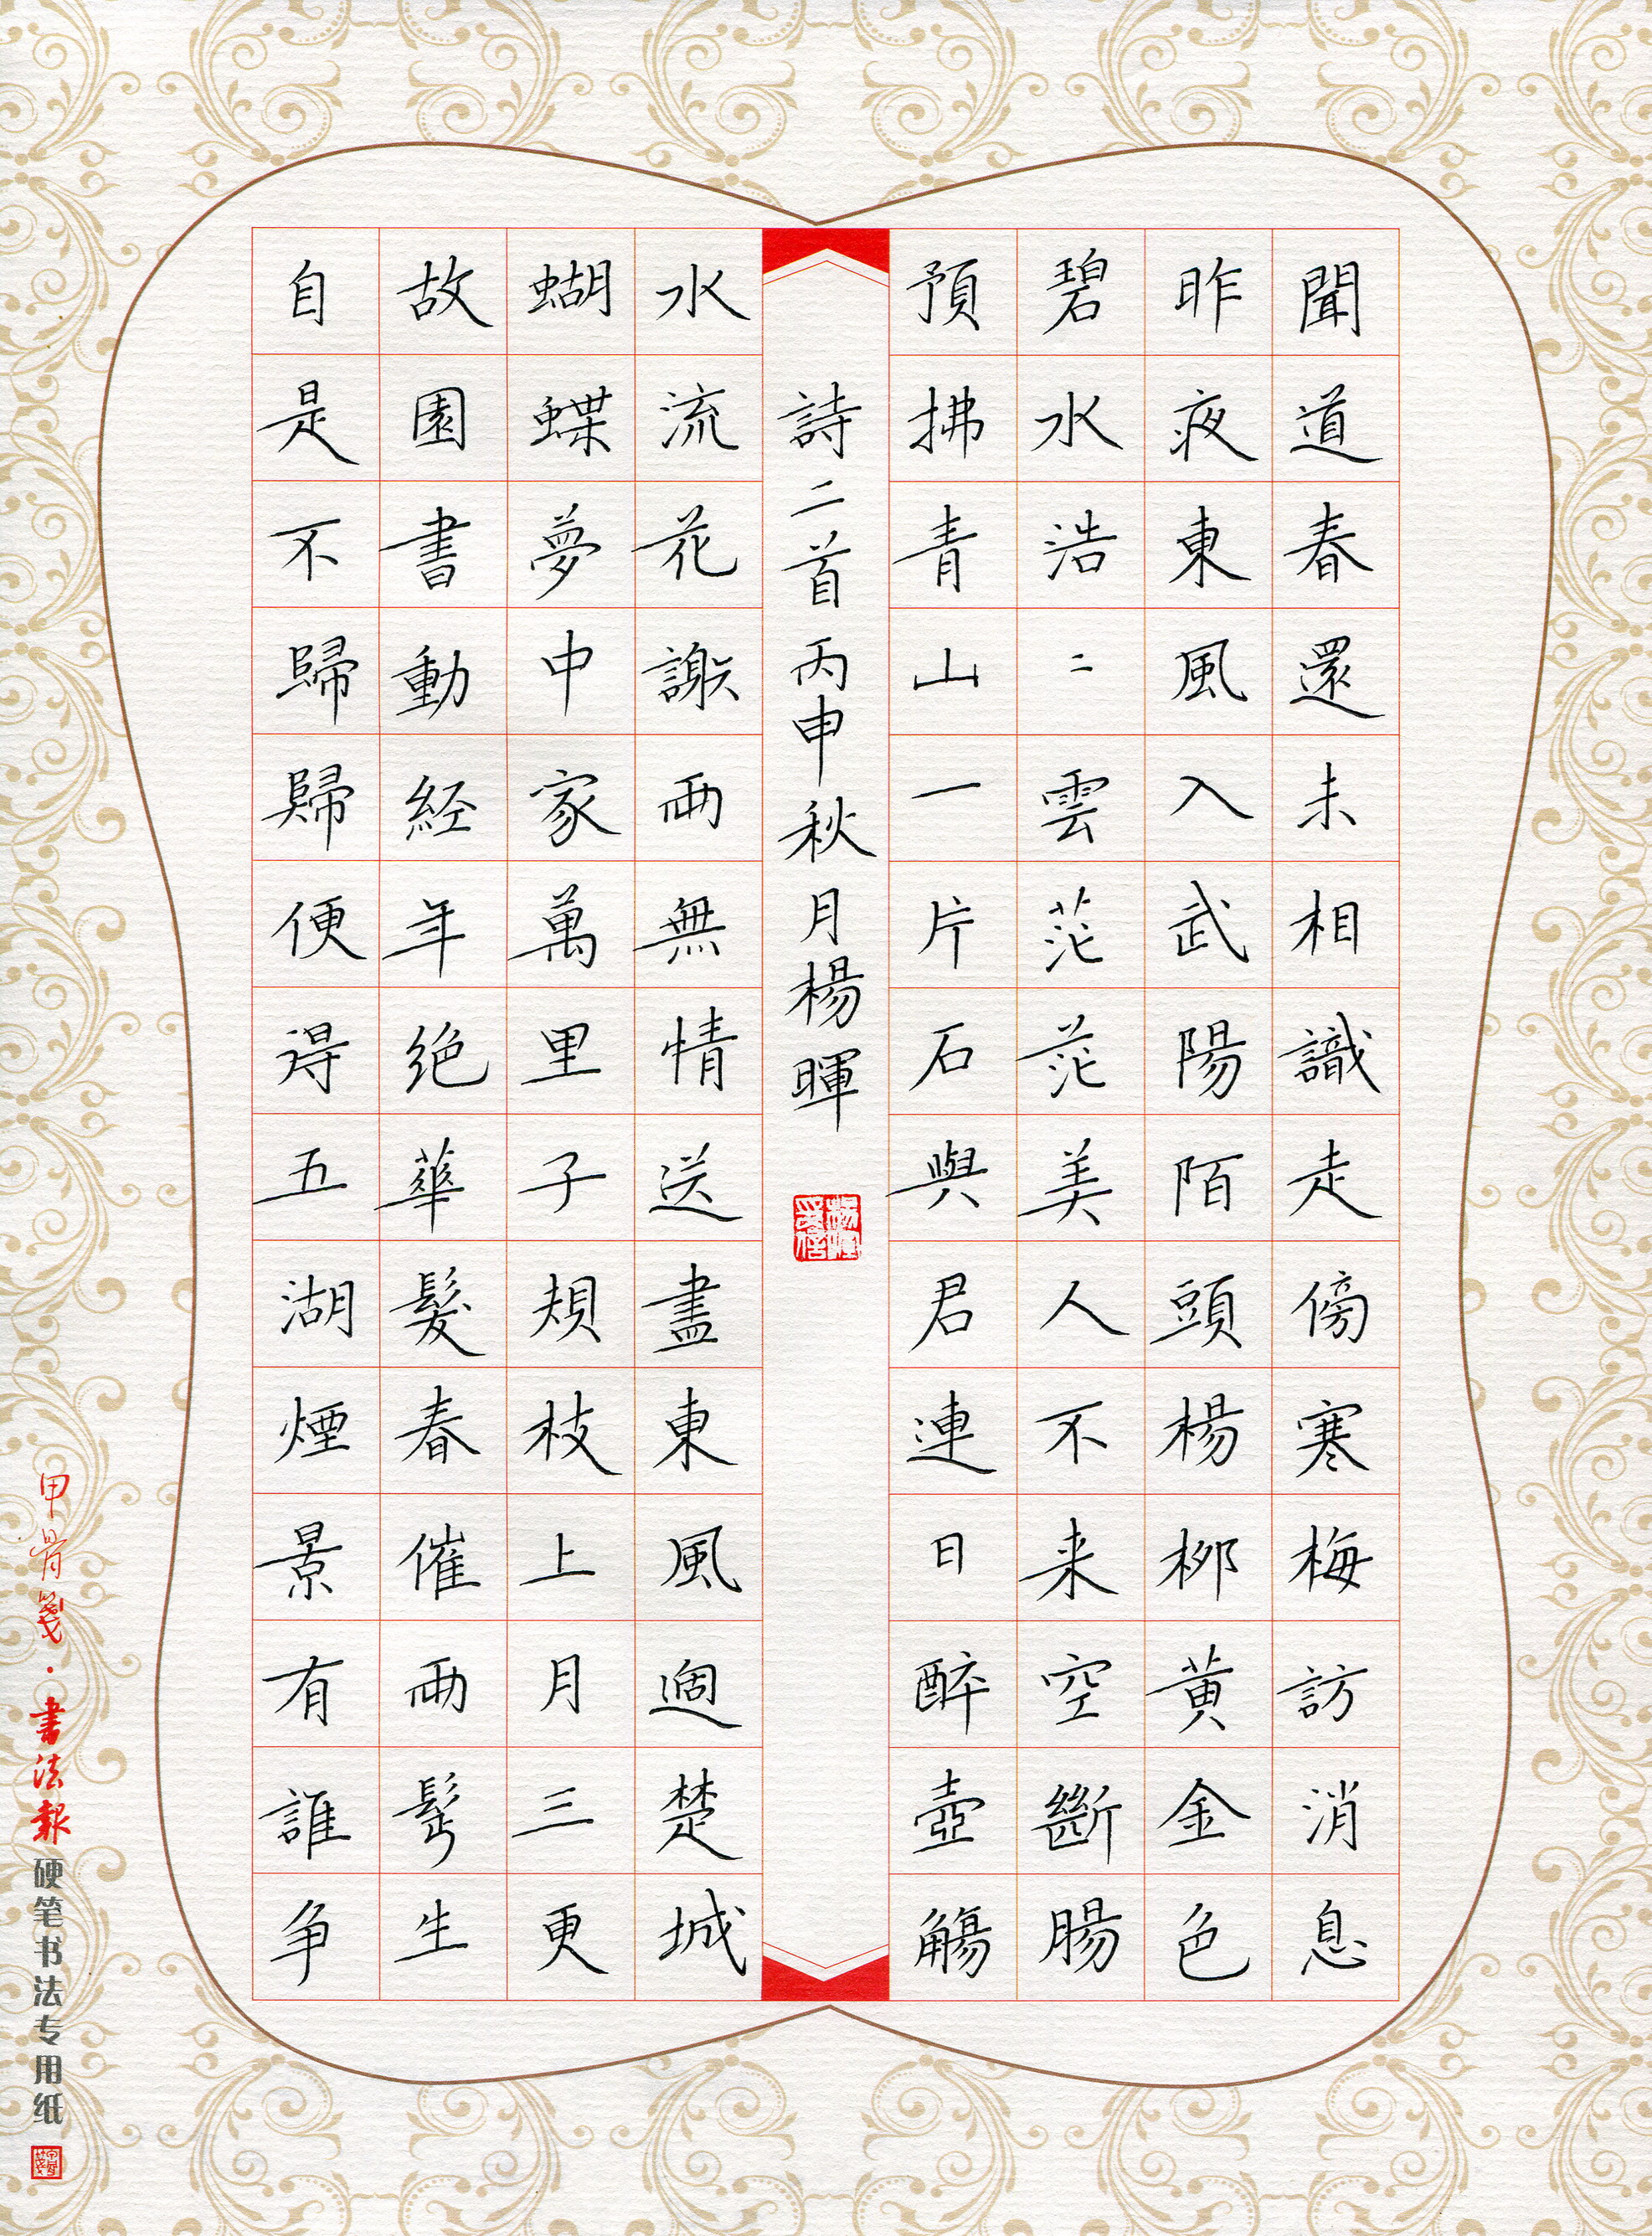 聞道春還未相識走傍寒梅訪消息
昨夜東風入武陽陌頭楊柳黄金色
碧水浩〻雲茫茫美人不来空斷腸
預拂青山一片石與君連日醉壺觴
詩二首 丙申秋月楊暉
水流花謝兩無情送盡東風過楚城
蝴蝶夢中家萬里子規枝上月三更
故園書動經年绝華髮春催兩鬢生
自是不歸歸便得五湖煙景有誰争
甲骨箋·書法報 硬笔书法专用纸